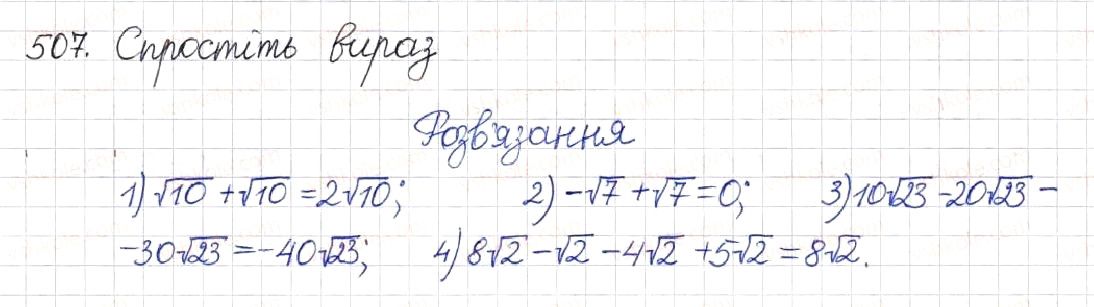 507. Спростіть вираз
Розв'язання
1) √10 + √10 = 2√10; 2) -√7 + √7 = 0; 3) 10√23 - 20√23 -
- 30√23 = -40√23; 4) 8√2 - √2 - 4√2 + 5√2 = 8√2.